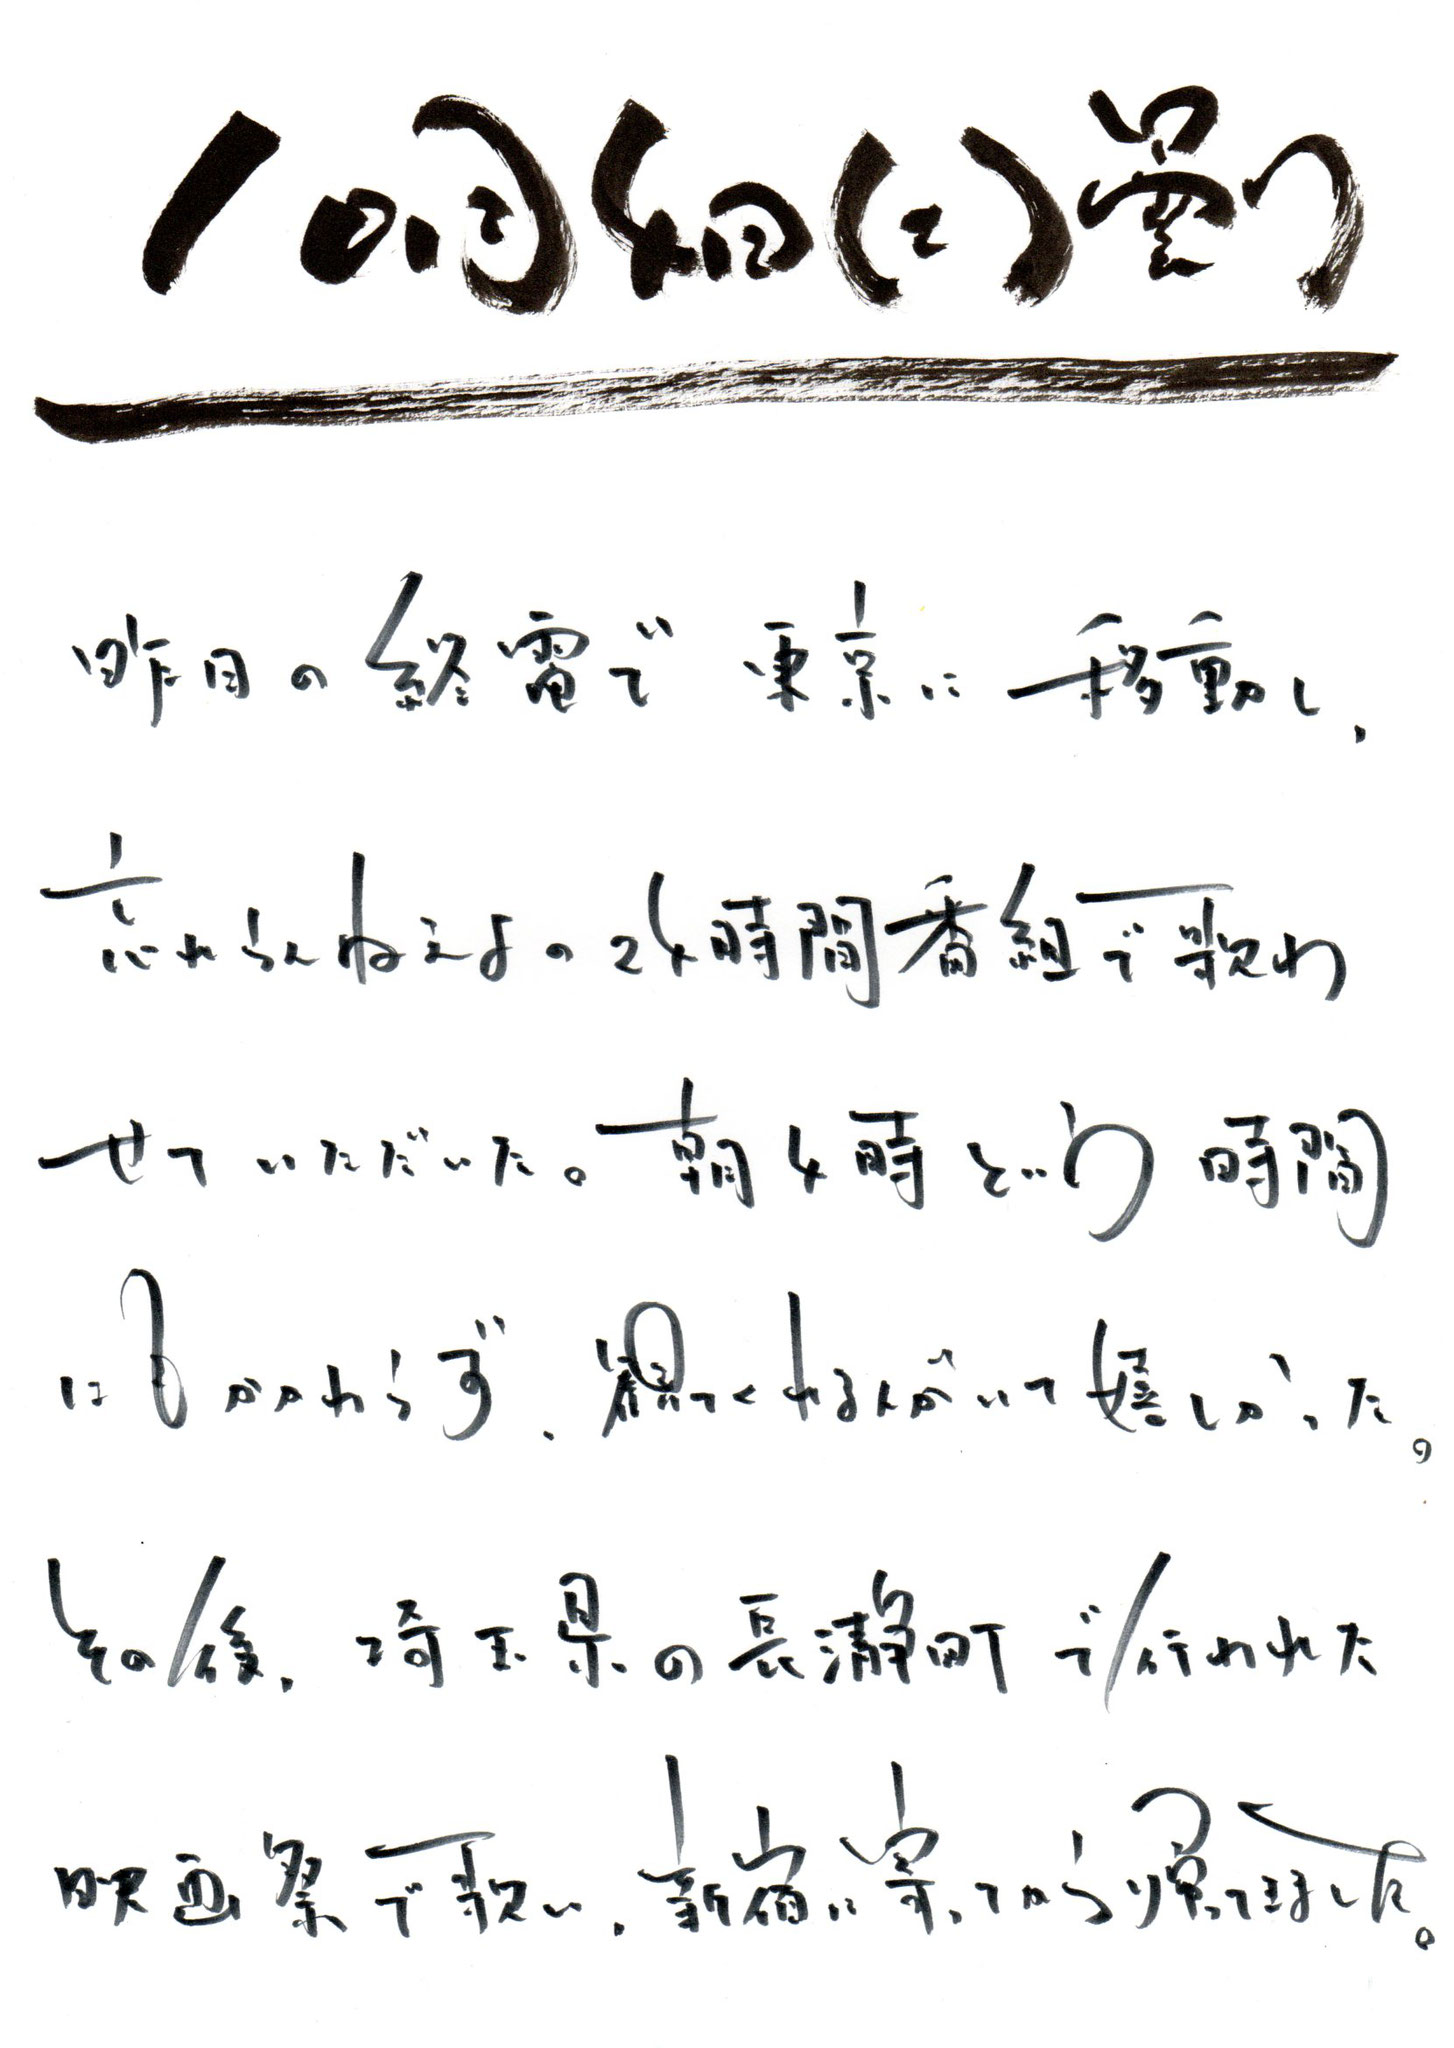 10月4日(土)曇り
昨日の終電で東京に移動し、
忘れらんねえよの24時間番組で歌わ
せていただいた。朝4時という時間
にもかかわらず、観てくれる人がいて嬉しかった。
その後、埼玉県の長瀞町で行われた
映画祭で歌い、新宿に寄ってから帰ってきました。